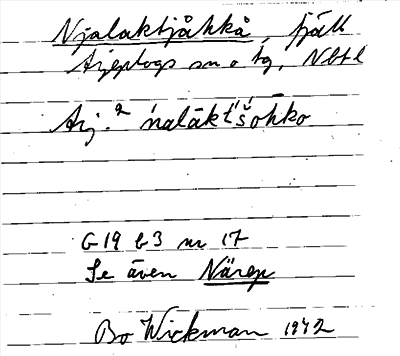 Njalaktjåhkå, fjäll
Arjeplogs sn o tg, Nbtl
Arj.² ńalāktʹšohko
G19 b3 nr 17
Se även Närep
Bo Wickman 1942